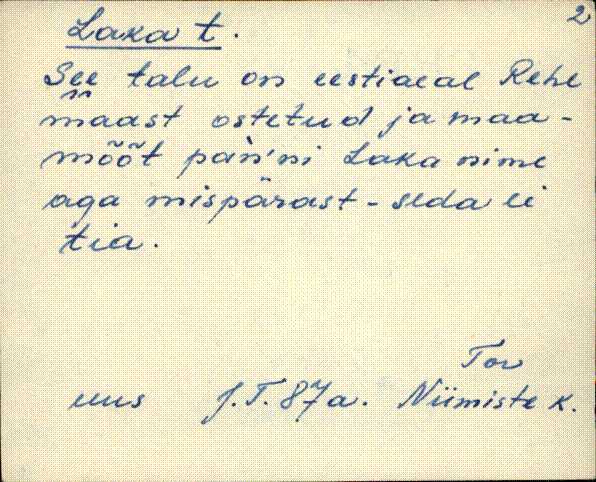 2
Laka t.
See talu on eestiaeal Rehe
maast ostetud ja maa-
mõõt pań'ni Laka nime
aga mispärast - seda ei
tia.
Tor
uus J.T. 87a. Niimiste k.